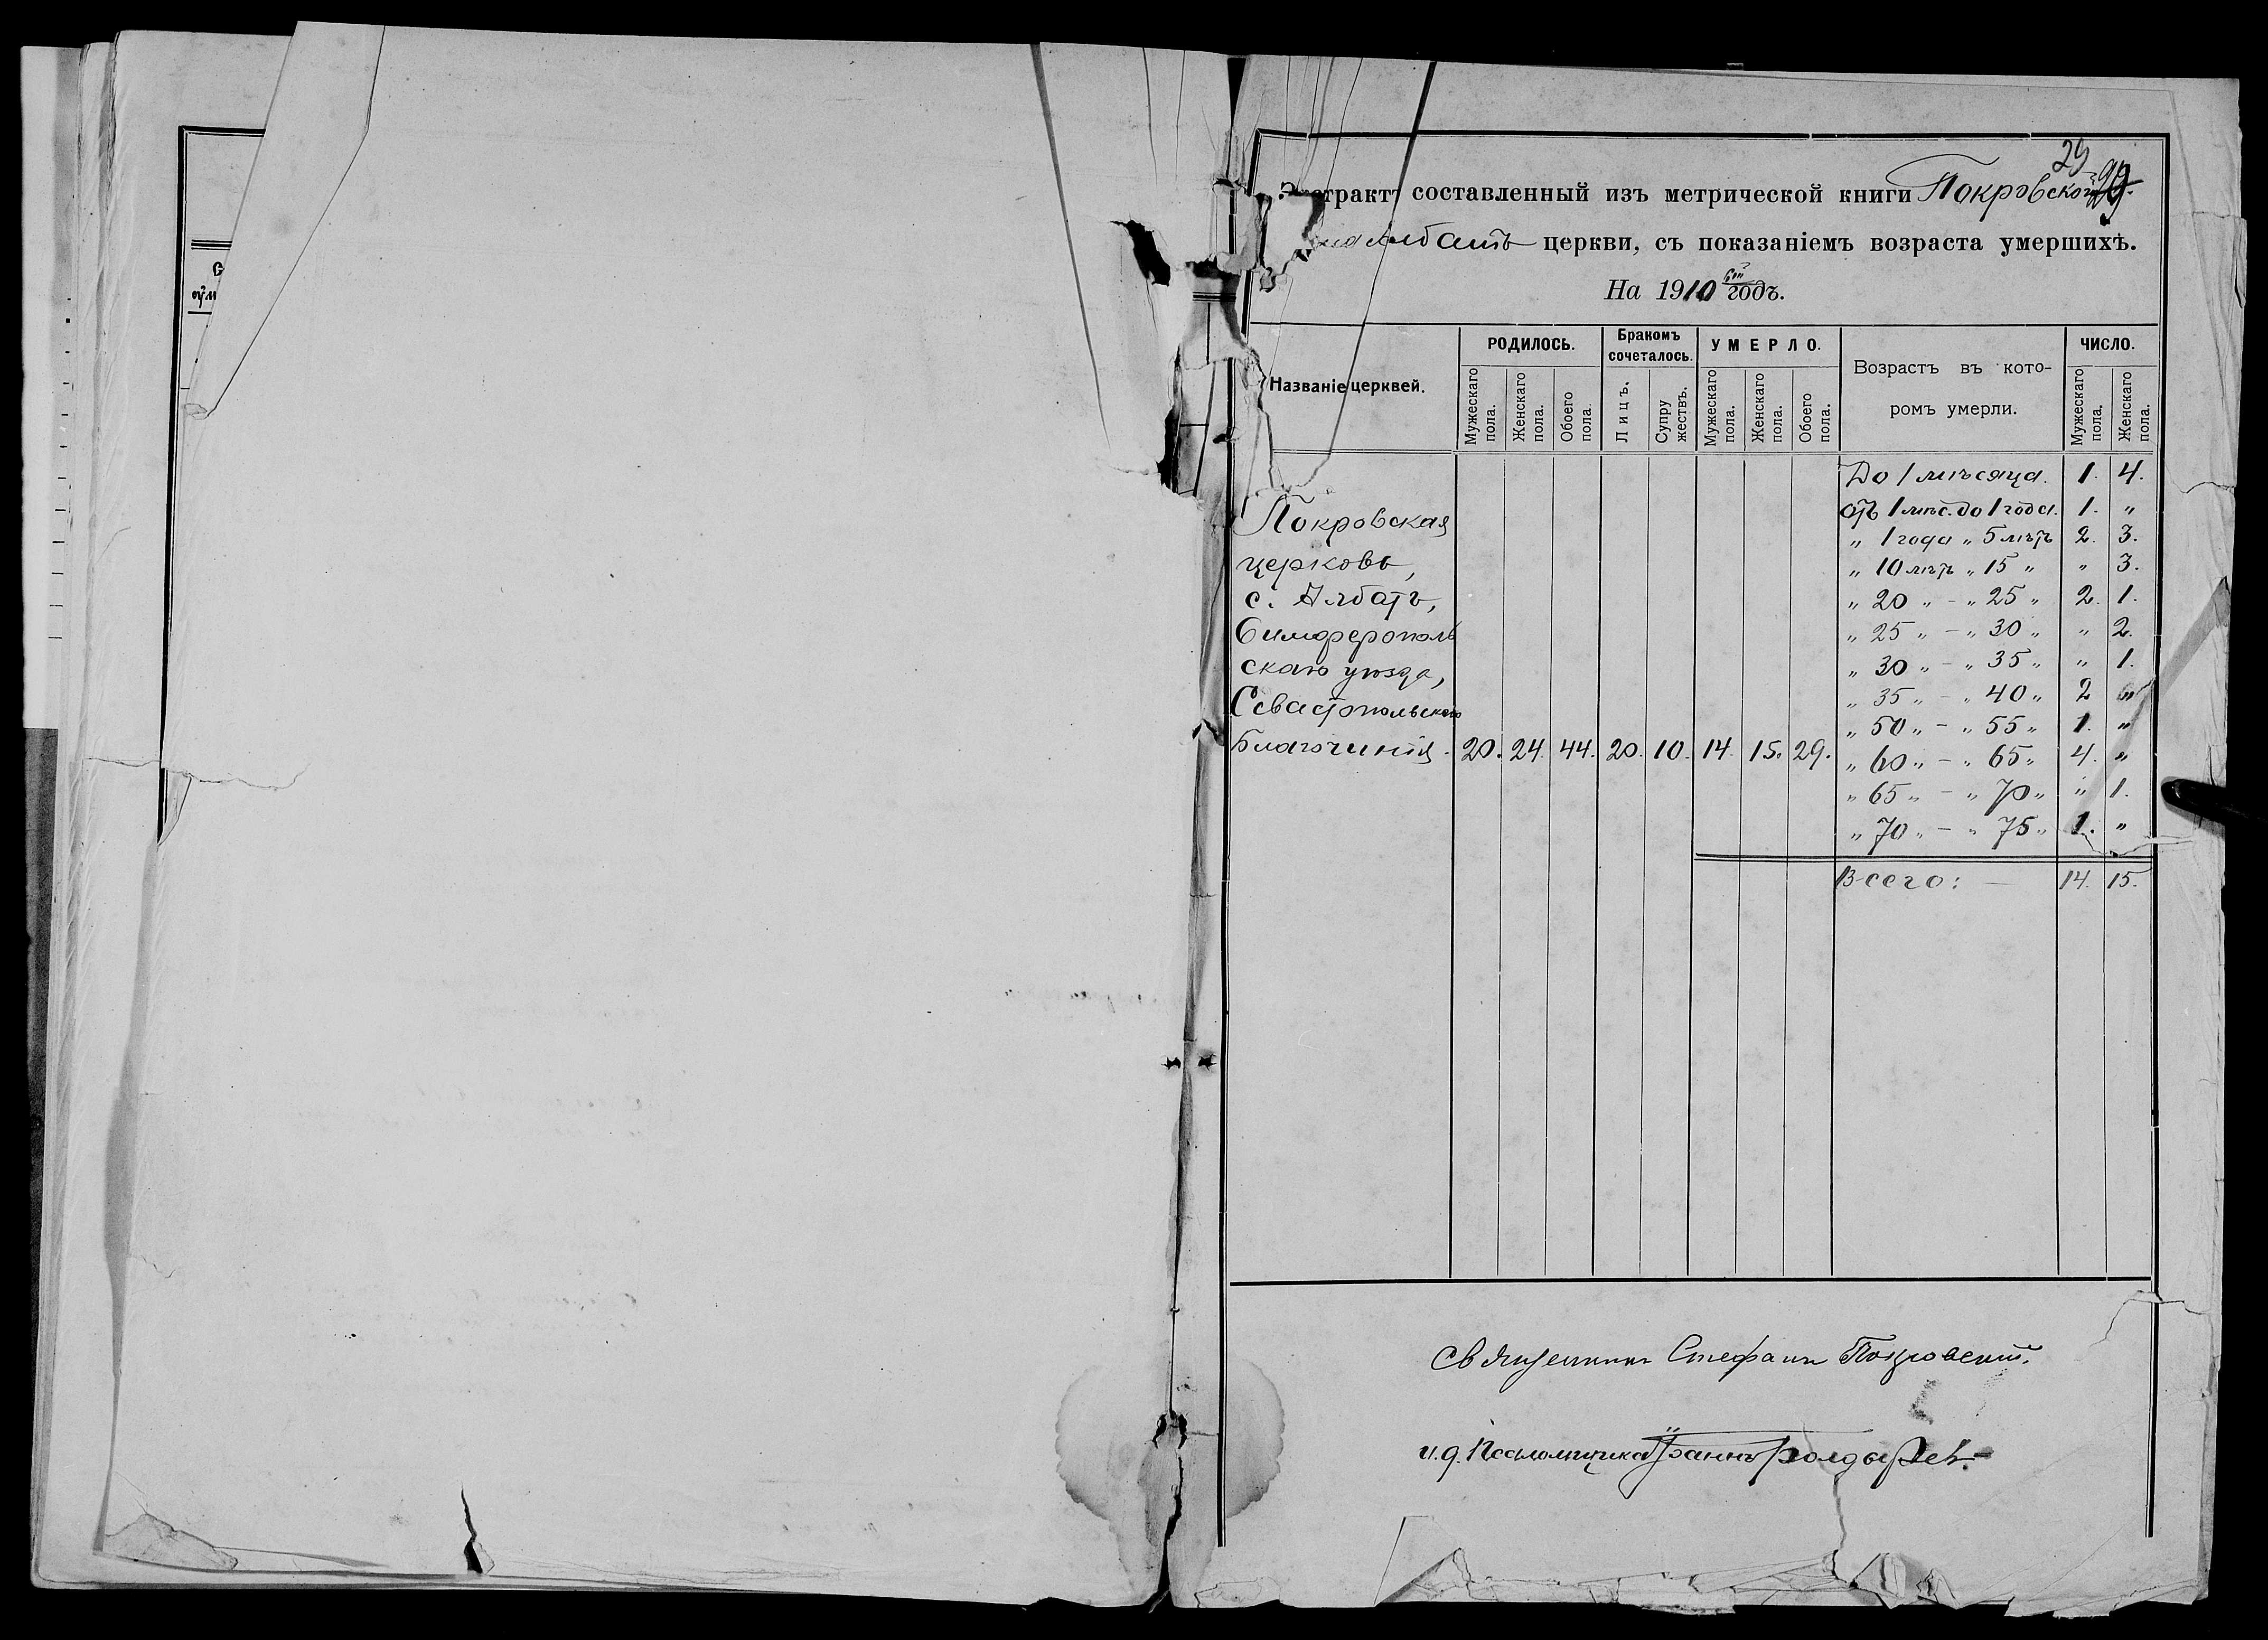 29
трактъ составленный изъ метрической книги Покровской
Албатъ церкви, съ показаніемъ возраста умершихъ.
На 1910 годъ.
Названіе церквей.
РОДИЛОСЬ.
Бракомъ сочеталось.
УМЕРЛО.
Возрастъ въ кото-
ромъ умерли.
ЧИСЛО.
Мужескаго пола.
Женскаго пола.
Обоего пола.
Лицъ.
Супружествъ.
Мужескаго пола.
Женскаго пола.
Обоего пола.
Мужескаго пола.
Женскаго пола.
До 1 мѣсяца. 1. 4.
отъ 1 мѣс. до 1 года. 1. "
" 1 года " 5 лѣтъ 2. 3.
" 10 лѣтъ " 15 " " 3.
" 20 " - " 25 " 2. 1.
" 25 " - " 30 " " 2.
" 30 " - " 35 " " 1.
" 35 " - " 40 " 2 "
" 50 " - " 55 " 1. "
" 60 " - " 65 " 4. "
" 65 " - " 70 " " 1.
" 70 " - " 75 " 1. "
Всего: — 14. 15.
Покровская
церковь,
с. Албатъ,
Симферополь
скаго уѣзда,
Севастопольскаго
Благочинія. 20. 24. 44. 20. 10. 14. 15. 29.
Священникъ Стефанъ Покровскій.
и.д. Псаломщика Іоаннъ Болдырев